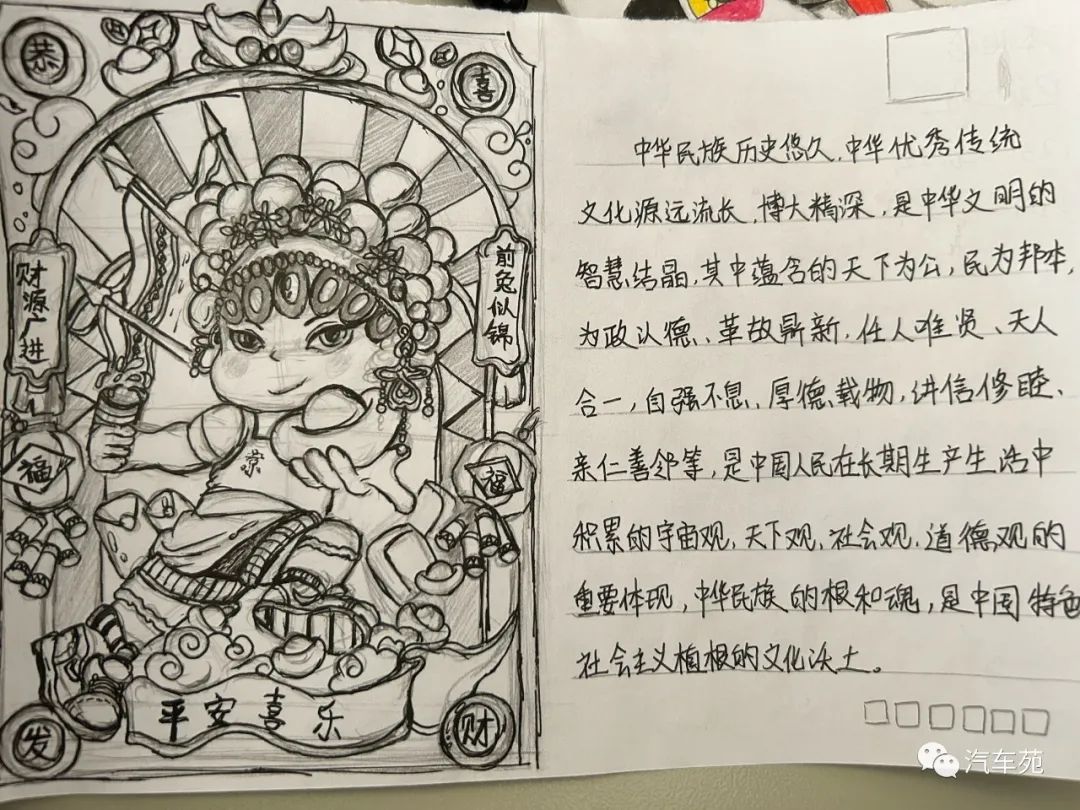 恭
喜
财源广进
前兔似锦
福
福
京
平安喜乐
发
财
中华民族历史悠久,中华优秀传统
文化源远流长,博大精深,是中华文明的
智慧结晶,其中蕴含的天下为公,民为邦本,
为政以德、革故鼎新,任人唯贤、天人
合一,自强不息、厚德载物,讲信修睦、
亲仁善邻等,是中国人民在长期生产生活中
积累的宇宙观,天下观,社会观,道德观的
重要体现,中华民族的根和魂,是中国特色
社会主义植根的文化沃土。
汽车苑